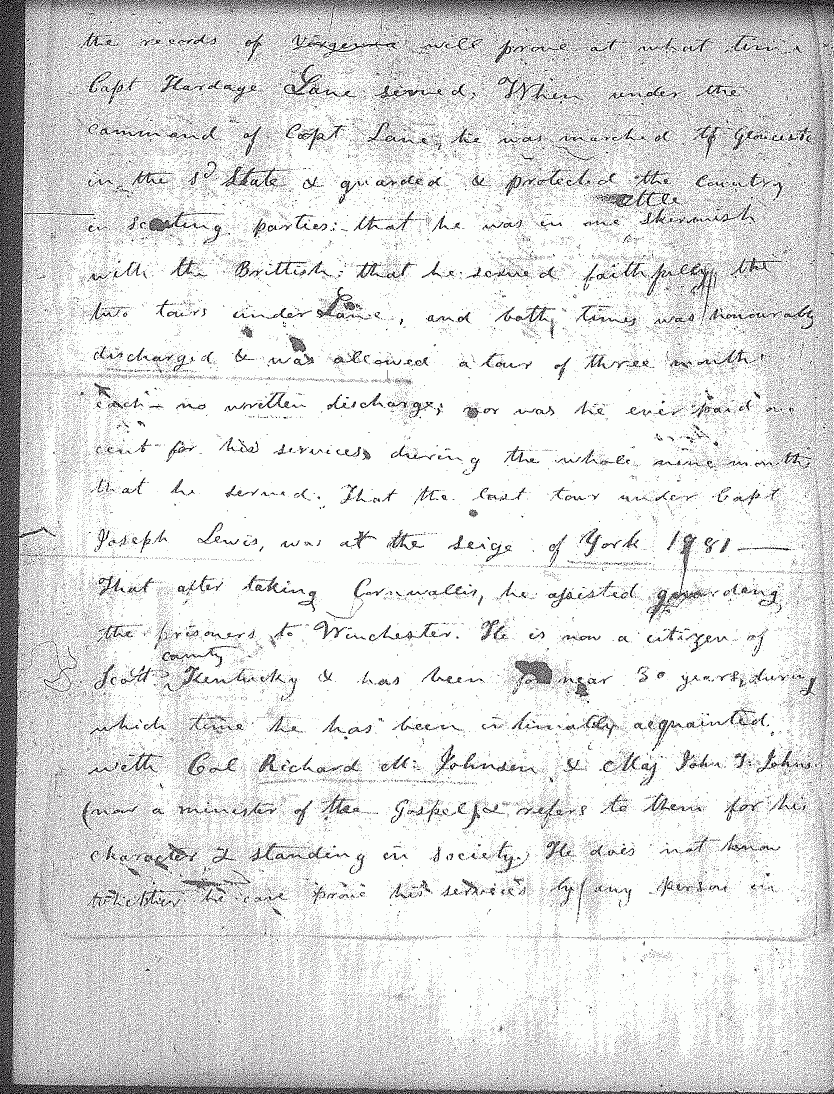 the records of Virgenia will prove at what time
Capt Hardage Lane served. When under the
command of Capt Lane, he was marched to Gloucester
in the sd State & guarded & protected the Country
in scouting parties: that he was in one little skermish
with the Brittish: that he served faithfully the
two tours under Lane, and both times was honourably
discharged & was allowed a tour of three months
each - no written discharge; nor was he ever paid one
cent for his services during the whole nine months
that he served. That the last tour under Capt
Joseph Lewis, was at the seige of York 1981 —
That after taking Cornwallis, he assisted guarding
the prisoners to Winchester. He is now a citizen of
Scott county Kentucky & has been for near 30 years, during
which time he has been intimately acquainted
with Col Richard M. Johnson & Maj John T. Johns
(now a minister of the Gospel) & refers to them for his
character & standing in society. He does not know
whether he can prove his services by any person in